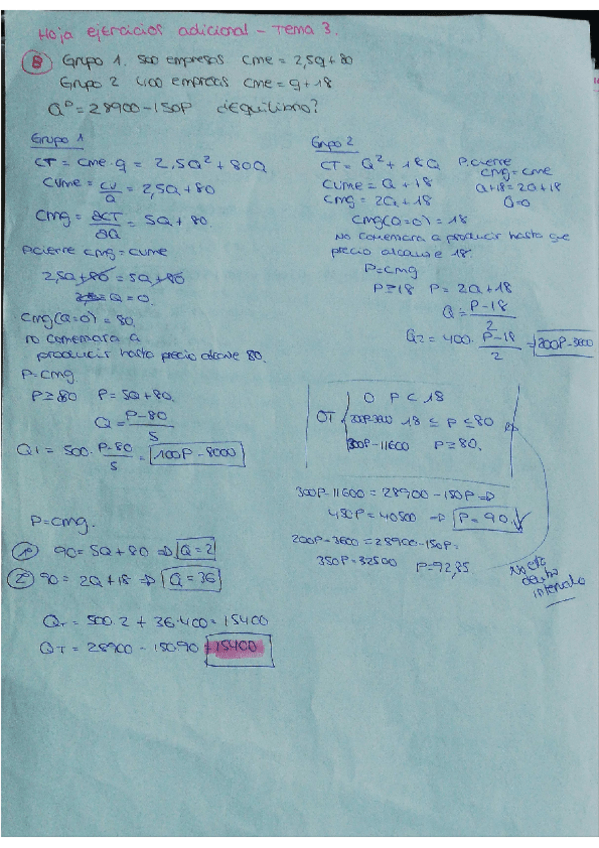 Hoja ejercicios adicional - Tema 3.
8 Grupo 1. 500 empresas Cme = 2,5q + 80
Grupo 2 400 empresas Cme = q + 18
Q^D = 28900 - 150P ¿Equilibrio?
Grupo 1
CT = Cme · q = 2,5Q² + 80Q
CVme = CV/Q = 2,5Q + 80
Cmg = ∂CT/∂Q = 5Q + 80
P.cierre Cmg = CVme
2,5Q + 80 = 5Q + 80
Q = 0
Cmg(Q=0) = 80
no comenzara a
producir hasta precio alcance 80.
P = Cmg
P ≥ 80 P = 5Q + 80.
Q = P-80/5
Q1 = 500 · P-80/5 = 100P - 8000
Grupo 2
CT = Q² + 18Q
CVme = Q + 18
Cmg = 2Q + 18
P.cierre
Cmg = Cme
Q+18 = 2Q+18
Q=0
Cmg(Q=0) = 18
No comenzara a producir hasta que
precio alcance 18.
P = Cmg
P ≥ 18 P = 2Q + 18
Q = P-18/2
Q2 = 400 · P-18/2 = 200P - 3600
OT
0 P < 18
200P-3600 18 ≤ P ≤ 80
300P - 11600 P ≥ 80.
300P - 11600 = 28900 - 150P ⇒
450P = 40500 ⇒ P = 90.
200P - 3600 = 28900 - 150P =
350P = 32500 P = 92,85
No está
dentro
intervalo
P = Cmg.
1º 90 = 5Q + 80 ⇒ Q = 2
2º 90 = 2Q + 18 ⇒ Q = 36
QT = 500·2 + 36·400 = 15400
QT = 28900 - 150·90 = 15400